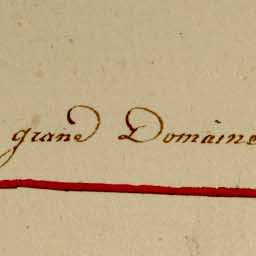 grand Domaine